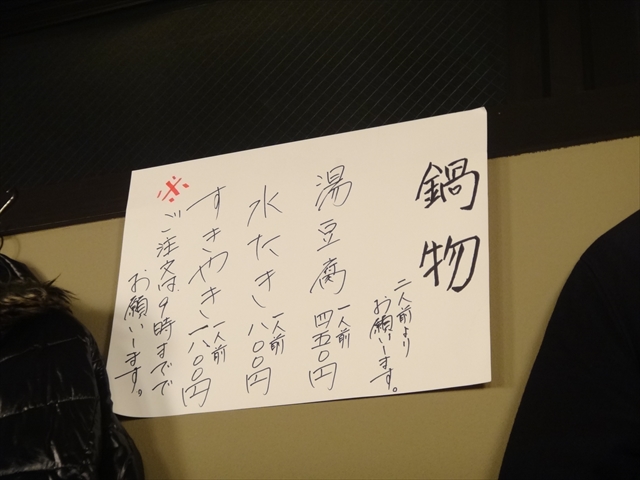 鍋物
二人前より
お願いします。
湯豆腐 一人前 四五〇円
水たき 一人前 八〇〇円
すきやき 一人前 一八〇〇円
※ご注文は9時までで
お願いします。